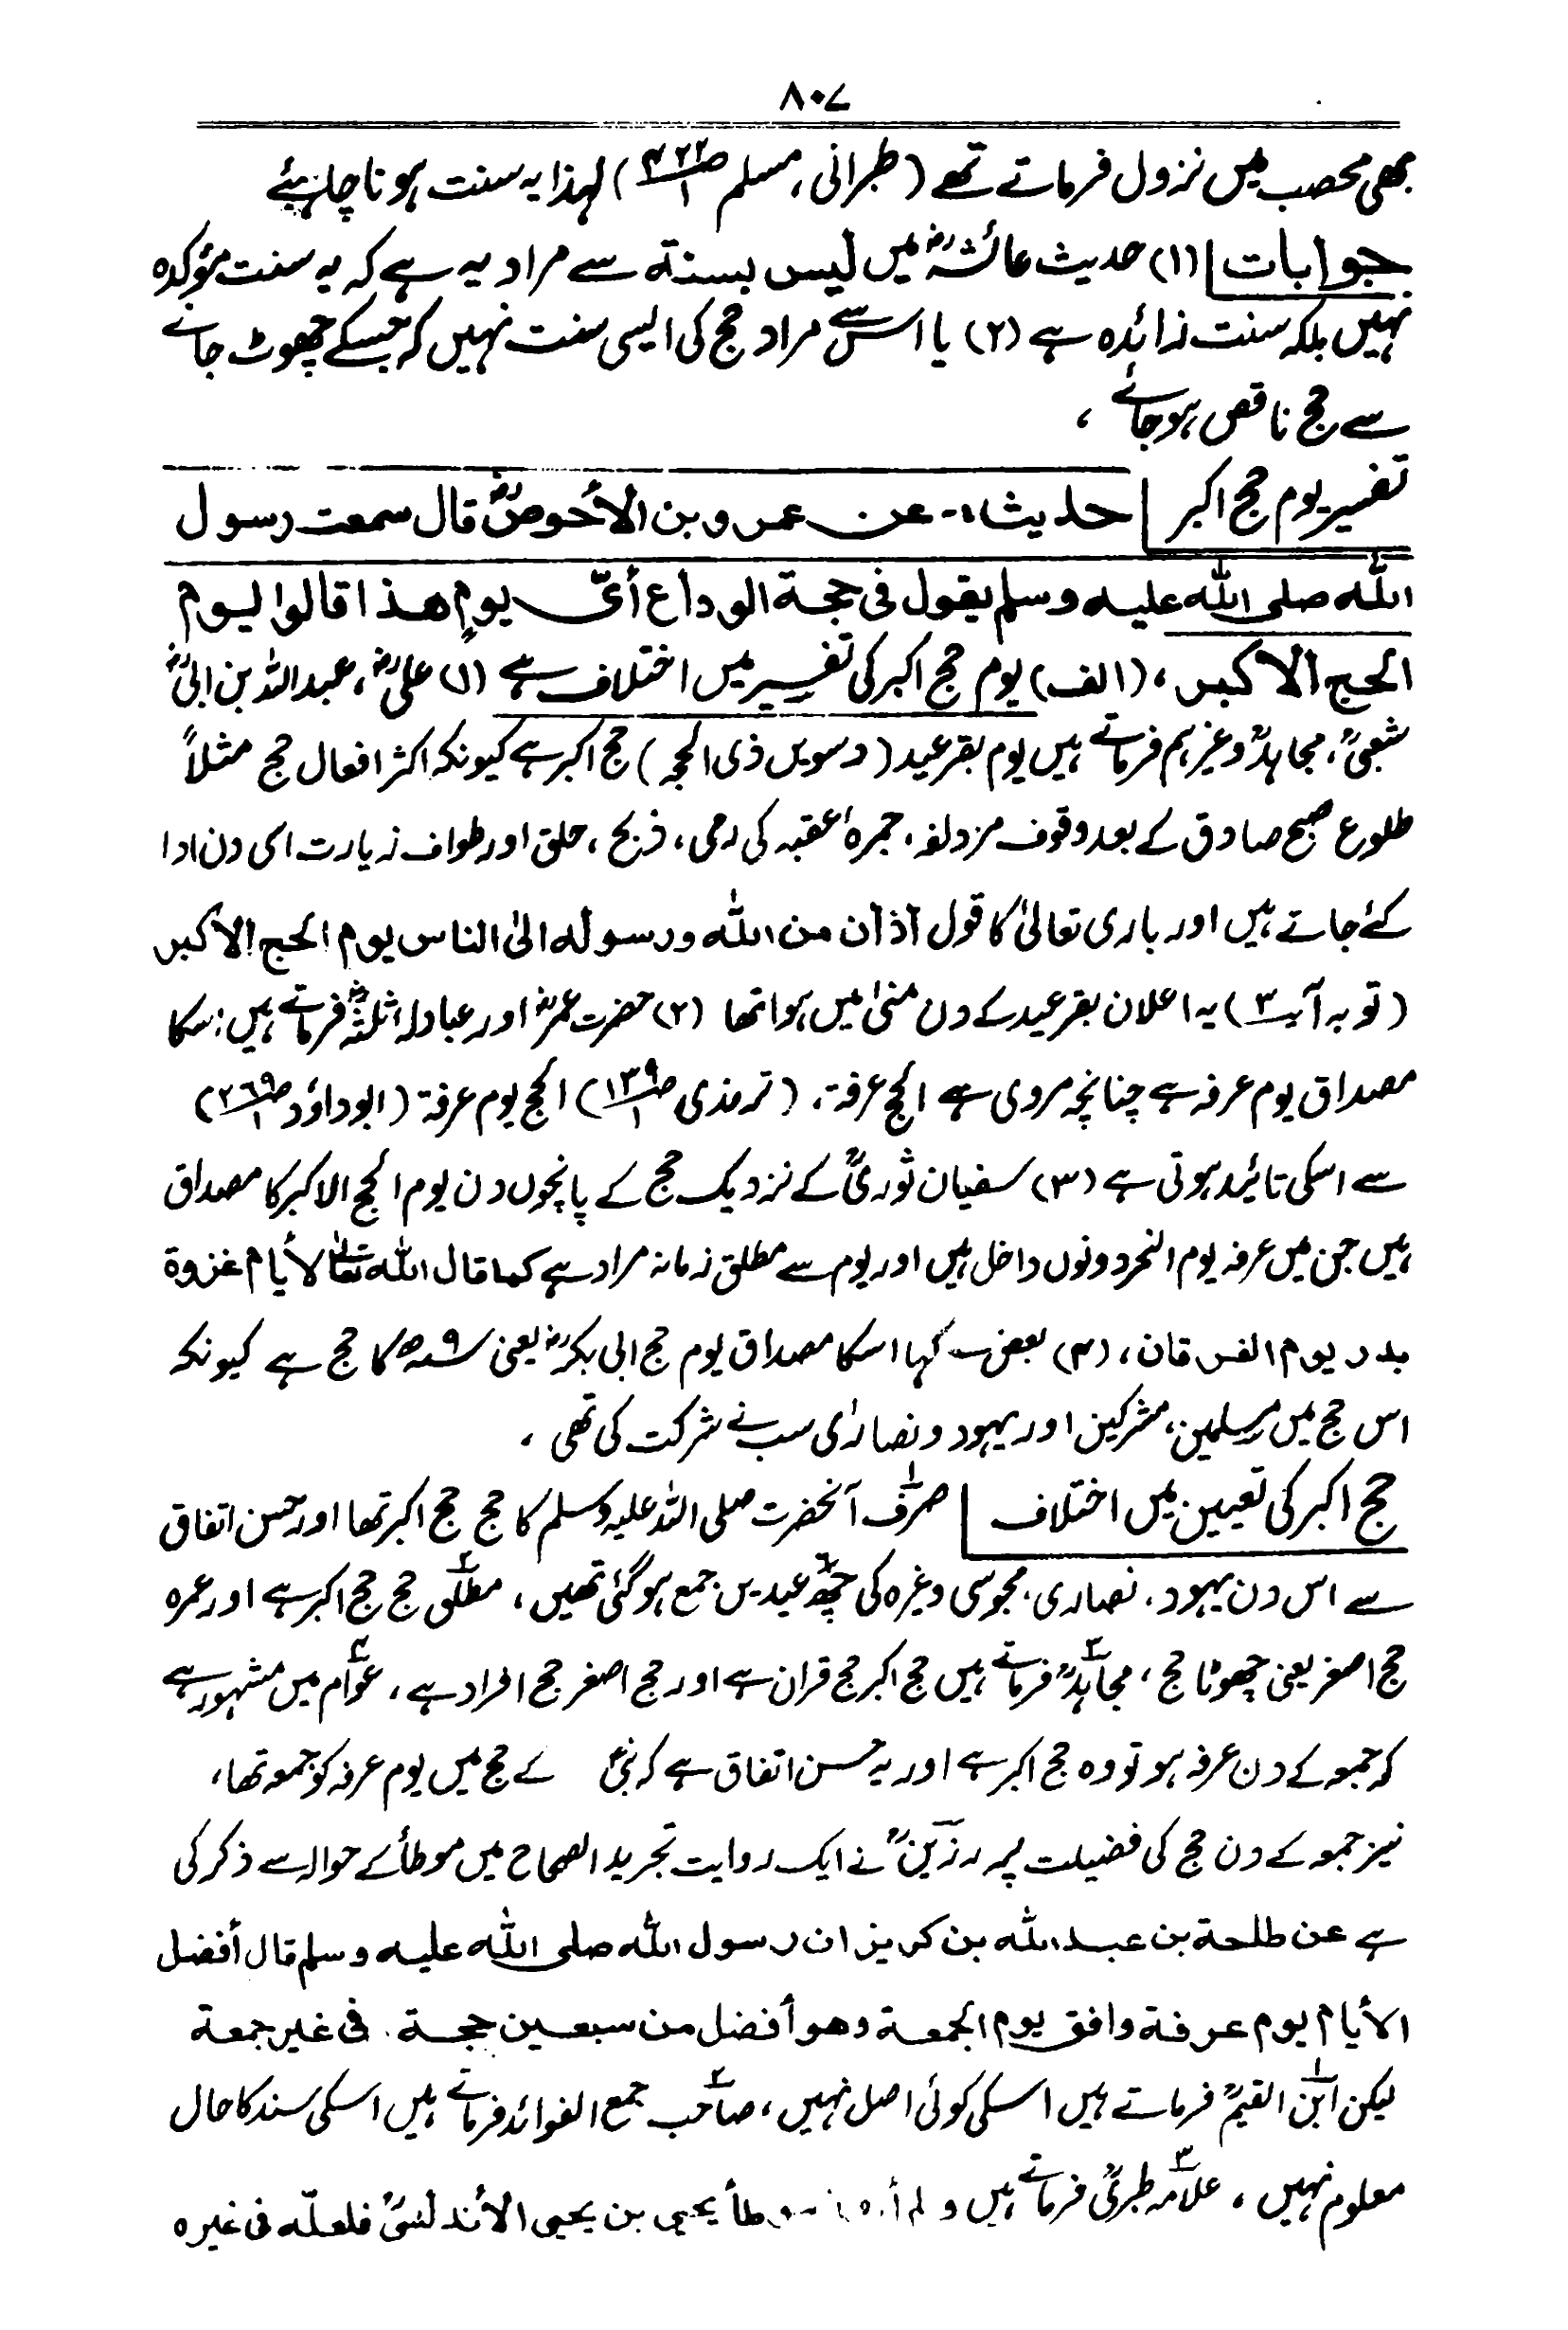 ۸۰۷
بھی محصب میں نزول فرماتے تھے (طبرانی، مسلم ص۴۲۲/۱) لہذا یہ سنت ہونا چاہیئے
جوابات (۱) حدیث عائشہؓ میں لیس بسنة سے مراد یہ ہے کہ یہ سنت مؤکدہ
نہیں بلکہ سنت زائدہ ہے (۲) یا اس سے مراد حج کی ایسی سنت نہیں کہ جسکے چھوٹ جانے
سے حج ناقص ہو جائے ،
تفسیر یوم حج اکبر حدیث :- عن عمرو بن الأحوصؓ قال سمعت رسول
اللّٰه صلی اللّٰه علیه وسلم یقول فی حجة الوداع أیّ یومٍ هذا قالوا الیوم
الحج الاکبر ، (الف) یوم حج اکبر کی تفسیر میں اختلاف ہے (۱) علیؓ ، عبداللہ بن ابیؓ
شعبیؒ، مجاہدؒ وغیرہم فرماتے ہیں یوم بقر عید (دسویں ذی الحجہ) حج اکبر ہے کیونکہ اکثر افعال حج مثلاً
طلوع صبح صادق کے بعد وقوف مزدلفہ ، جمرۂ عقبہ کی رمی ، ذبح ، حلق اور طواف زیارت اسی دن ادا
کئے جاتے ہیں اور باری تعالیٰ کا قول آذآن من اللّٰه ورسوله الیٰ الناس یوم الحج الاکبر
(توبہ آیت ۳) یہ اعلان بقر عید کے دن منیٰ میں ہوا تھا (۲) حضرت عمرؓ اور عبادلہ ثلثہؓ فرماتے ہیں اسکا
مصداق یوم عرفہ ہے چنانچہ مروی ہے الحج عرفة ، (ترمذی ص۱۳۹/۱) الحج یوم عرفة (ابوداؤد ص۲۶۹/۱)
سے اسکی تائید ہوتی ہے (۳) سفیان ثوریؒ کے نزدیک حج کے پانچوں دن یوم الحج الاکبر کا مصداق
ہیں جن میں عرفہ یوم النحر دونوں داخل ہیں اور یوم سے مطلق زمانہ مراد ہے کما قال اللّٰه تعالیٰ لأیام غزوة
بدر یوم الفرقان ، (۴) بعض نے کہا اسکا مصداق یوم حج ابی بکرؓ یعنی ۹ھ کا حج ہے کیونکہ
اس حج میں مسلمین، مشرکین اور یہود و نصارٰی سب نے شرکت کی تھی ،
حج اکبر کی تعیین میں اختلاف صرف۱ آنحضرت صلی اللہ علیہ وسلم کا حج حج اکبر تھا اور حسن اتفاق
سے اس دن یہود ، نصاری ، مجوسی وغیرہ کی چھ عیدیں جمع ہو گئی تھیں ، مطلق۲ حج حج اکبر ہے اور عمرہ
حج اصغر یعنی چھوٹا حج ، مجاہدؒ۳ فرماتے ہیں حج اکبر حج قران ہے اور حج اصغر حج افراد ہے ، عوام۴ میں مشہور ہے
کہ جمعہ کے دن عرفہ ہو تو وہ حج اکبر ہے اور یہ حسن اتفاق ہے کہ نبیؐ کے حج میں یوم عرفہ کو جمعہ تھا ،
نیز جمعہ کے دن حج کی فضیلت پر رزینؒ نے ایک روایت تجرید الصحاح میں موطأ کے حوالہ سے ذکر کی
ہے عن طلحة بن عبد اللّٰه بن کریز ان رسول اللّٰه صلی اللّٰه علیه وسلم قال أفضل
الأیام یوم عرفة وافق یوم الجمعة وهو أفضل من سبعین حجة فی غیر جمعة
لیکن ابن۱ القیمؒ فرماتے ہیں اسکی کوئی اصل نہیں ، صاحب۲ جمع الفوائد فرماتے ہیں اسکی سند کا حال
معلوم نہیں ، علامہ۳ طبریؒ فرماتے ہیں و لم أره یحیی بن یحیی الأندلسیؒ فلعلّه فی غیره